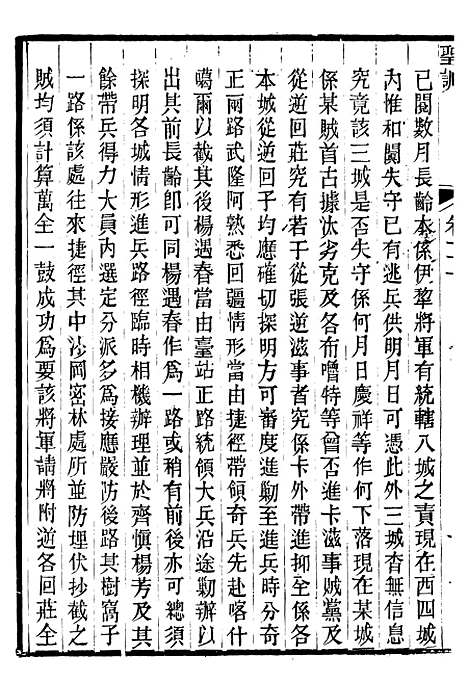 聖訓
卷二一
已閱數月長齡本係伊犂將軍有統轄八城之責現在西四城
內惟和闐失守已有逃兵供明月日可憑此外三城杳無信息
究竟該三城是否失守係何月日慶祥等作何下落現在某城
係某賊首占據汰劣克及各布嚕特等曾否進卡滋事賊黨及
從逆回莊究有若干從張逆滋事者究係卡外帶進抑全係各
本城從逆回子均應確切探明方可審度進勦至進兵時分奇
正兩路武隆阿熟悉回疆情形當由捷徑帶領奇兵先赴喀什
噶爾以截其後楊遇春當由臺站正路統領大兵沿途勦辦以
出其前長齡卽可同楊遇春作爲一路或稍有前後亦可總須
探明各城情形進兵路徑臨時相機辦理並於齊愼楊芳及其
餘帶兵得力大員內選定分派多爲接應嚴防後路其樹窩子
一路係該處往來捷徑其中沙岡密林處所並防埋伏抄截之
賊均須計算萬全一鼓成功爲要該將軍請將附逆各回莊全